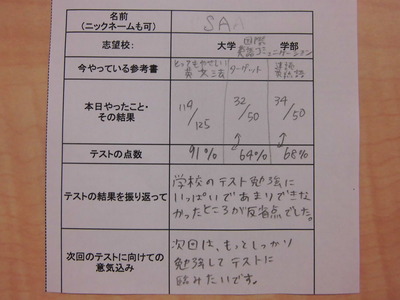 名前
(ニックネームも可)
SAA
志望校:
大学 国際 学部
英語コミュニケーション
今やっている参考書
とってもやさしい ターゲット 速読
英文法 英熟語
本日やったこと・
その結果
114/125 32/50 34/50
テストの点数
91% 64% 68%
テストの結果を振り返って
学校のテスト勉強に
いっぱいであまりできな
かったところが反省点でした。
次回のテストに向けての
意気込み
次回は、もっとしっかり
勉強してテストに
臨みたいです。